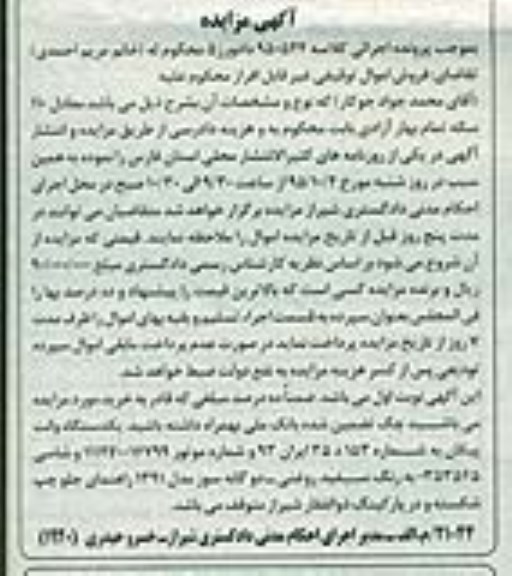 آگهی مزایده
بموجب پرونده اجرائی کلاسه محکوم له (خانم مریم احمدی)
تقاضای فروش اموال توقیفی غیر قابل افراز محکوم علیه
(آقای محمد جواد جوکار) که نوع و مشخصات آن بشرح ذیل می باشد معادل
سکه تمام بهار آزادی بابت محکوم به و هزینه دادرسی از طریق مزایده و انتشار
آگهی در یکی از روزنامه های کثیرالانتشار محلی استان فارس را نموده به همین
سبب در روز شنبه مورخ ۹۵/۱۰/۴ از ساعت ۹/۳۰ الی ۱۰/۳۰ صبح در محل اجرای
احکام مدنی دادگستری شیراز مزایده برگزار خواهد شد متقاضیان می توانند در
مدت پنج روز قبل از تاریخ مزایده اموال را ملاحظه نمایند. قیمتی که مزایده از
آن شروع می شود بر اساس نظریه کارشناس رسمی دادگستری مبلغ
ریال و برنده مزایده کسی است که بالاترین قیمت را پیشنهاد و ده درصد بها را
فی المجلس بعنوان سپرده به قسمت اجراء تسلیم و بقیه بهای اموال را ظرف مدت
روز از تاریخ مزایده پرداخت نماید در صورت عدم پرداخت مابقی اموال سپرده
تودیعی پس از کسر هزینه مزایده به نفع دولت ضبط خواهد شد.
این آگهی نوبت اول می باشد. ضمناً ده درصد مبلغی که قادر به خرید مورد مزایده
می باشید چک تضمین شده بانک ملی بهمراه داشته باشید. یکدستگاه وانت
پیکان به شماره ۱۵۳ د ۳۵ ایران ۹۳ و شماره موتور و شاسی
به رنگ سفید روغنی ـ دوگانه سوز مدل ۱۳۹۱ راهنمای جلو چپ
شکسته و در پارکینگ ذوالفقار شیراز متوقف می باشد.
م الف ـ مدیر اجرای احکام مدنی دادگستری شیراز ـ خسرو حیدری